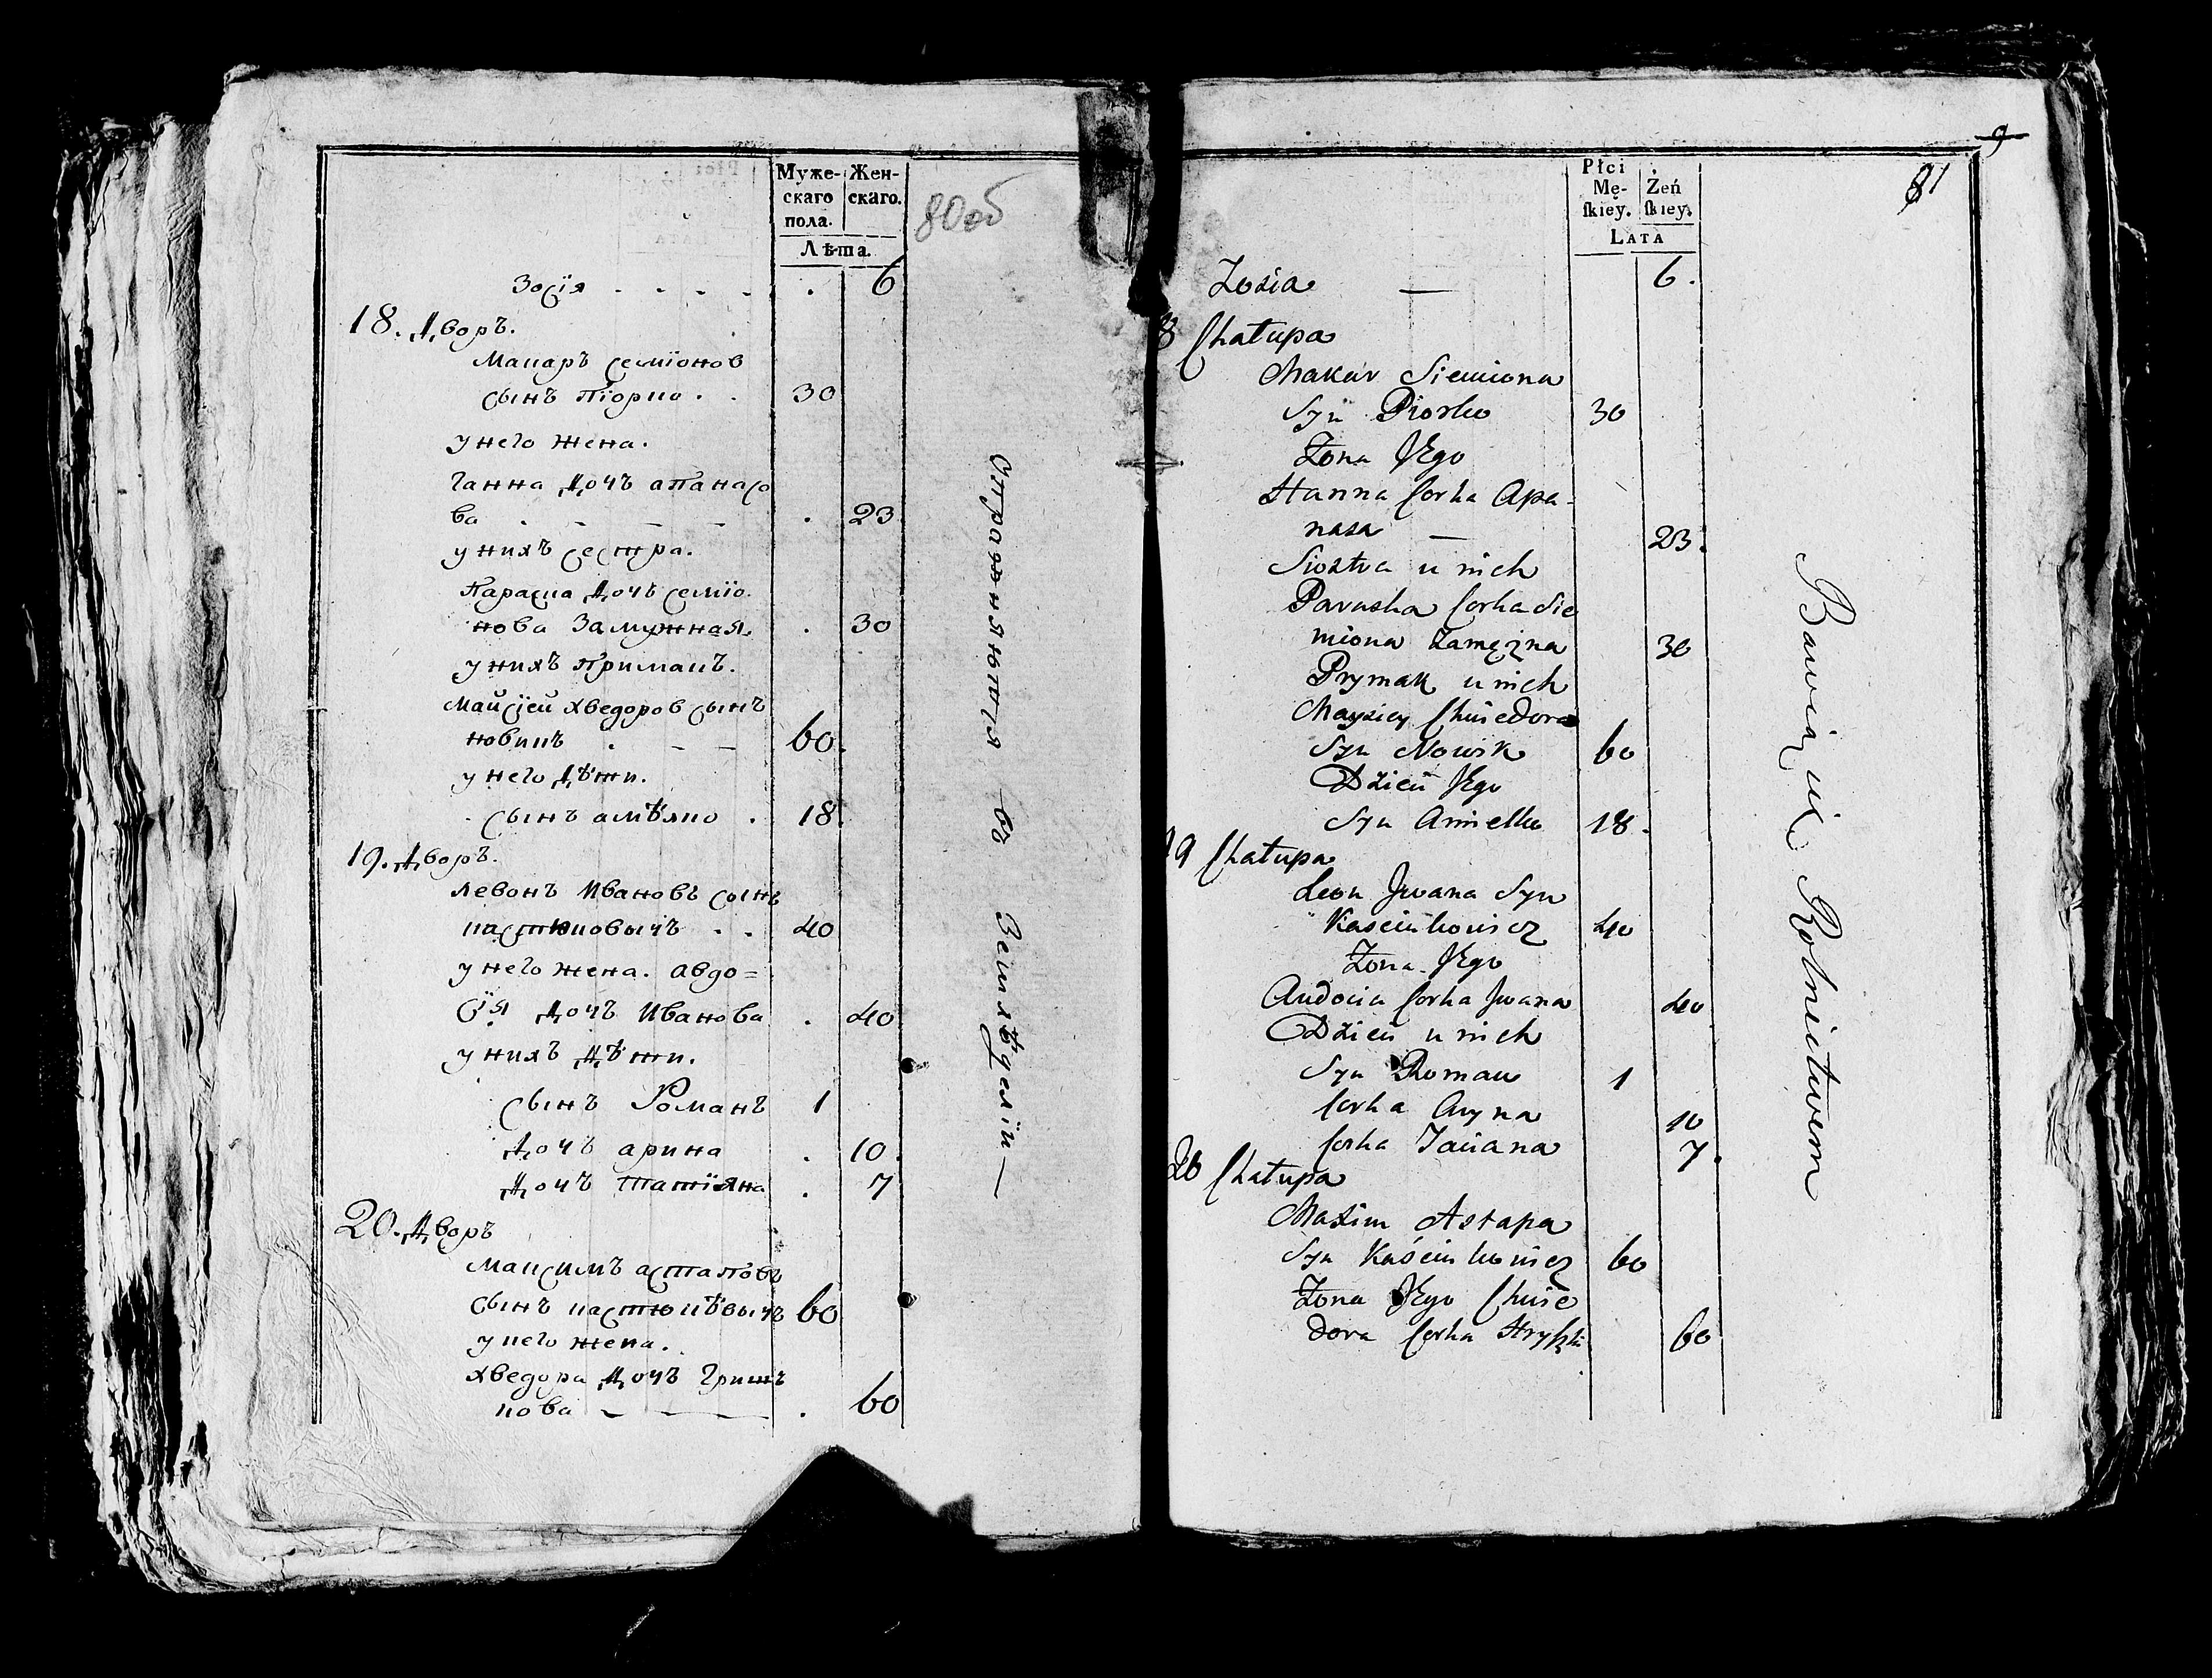 Муже-
скаго
пола.
Жен-
скаго.
Лѣта.
80об
Зосія - - - - . 6
18. Дворъ.
Макаръ Семіонов
сынъ Піорко . . 30
у него жена.
Ганна дочъ апанасо
ва . - - - . 23
у нихъ сестра.
Параска дочъ семіо
нова Замужная . 30
у нихъ примакъ.
Майсій хведоров сынъ
новикъ . - - 60.
у него дѣти.
сынъ амѣлко . 18.
19. Дворъ.
левонъ Ивановъ сынъ
кастюковичъ . . 40
у него жена. авдо=
сія дочъ Иванова . 40
у нихъ дѣти.
сынъ Романъ 1
дочъ арина . 10.
дочъ татіяна . 7
20. Дворъ
Максимъ астаповъ
сынъ кастюкѣвычъ 60
у него жена.
хведора дочъ Гришъ
кова - — . 60
въ Земледеліи —
9
81
Płci
Mę-
ſkiey.
Żeń
ſkiey.
LATA
Zosia — 6.
8 Chałupa
Makar Siemiona
Syn Piorko 30
Zona Jego
Hanna Corka Apa-
nasa — 23.
Siostra u nich
Paraska Corka Sie
miona Zamęzna 30
Prymak u nich
Maysiey Chwiedora
Syn Nowik 60
Dzieci Jego
Syn Amelko 18.
19 Chałupa
Leon Jwana Syn
Kasciukowicz 40
Zona Jego
Audocia Corka Jwana 40
Dzieci u nich
Syn Roman 1
Corka Aryna 10
Corka Taciana 7.
20 Chałupa
Maxim Astapa
Syn Kaściukowicz 60
Zona Jego Chwie
dora Corka Hryszki 60
Bawią się Rolnictwem